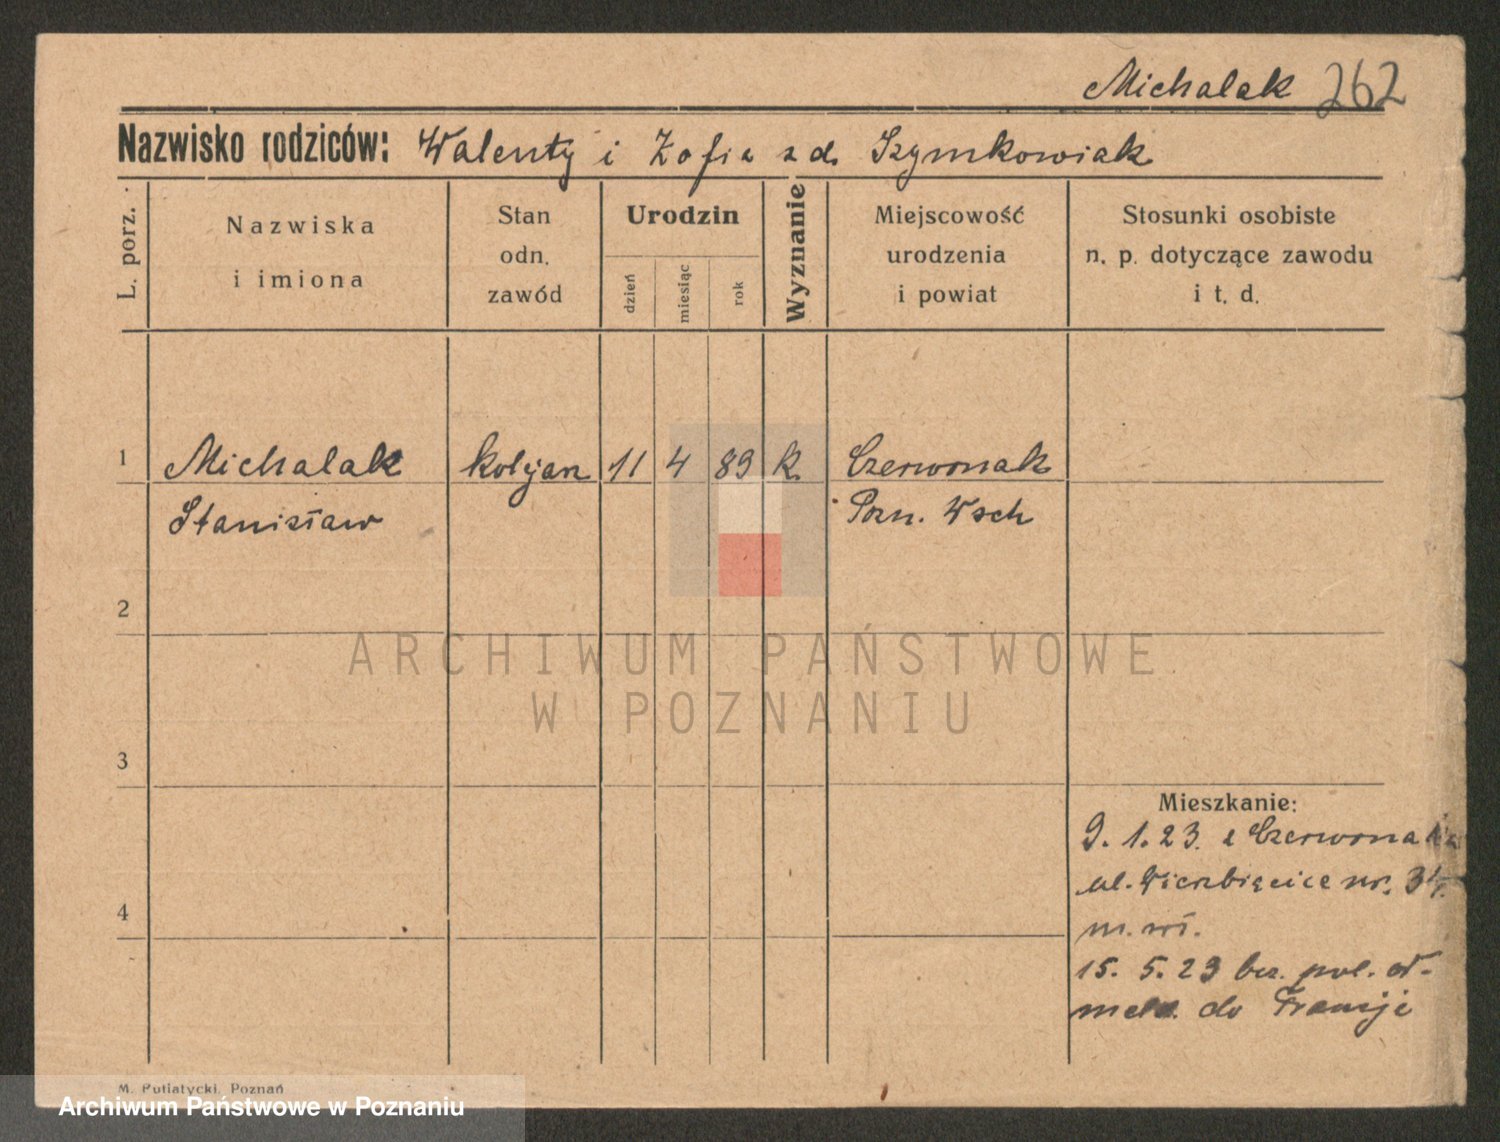 Michalak 262
Nazwisko rodziców: Walenty i Zofia z d. Szymkowiak
L. porz.
Nazwiska
i imiona
Stan
odn.
zawód
Urodzin
dzień
miesiąc
rok
Wyznanie
Miejscowość
urodzenia
i powiat
Stosunki osobiste
n. p. dotyczące zawodu
i t. d.
1 Michalak kolejarz 11 4 89 k. Czerwonak
Stanisław Pozn. Wsch
2
ARCHIWUM PAŃSTWOWE
W POZNANIU
3
Mieszkanie:
9. 1. 23. z Czerwonaka
ul. Wierzbięcice nr.
4
m.
15. 5. 23 bez. pol. od-
meld. do Francji
M. Putiatycki, Poznań
Archiwum Państwowe w Poznaniu